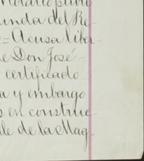 unda del Re
= Acusa
e Don José
certificado
a y embargo
s en construc
le de la Mag